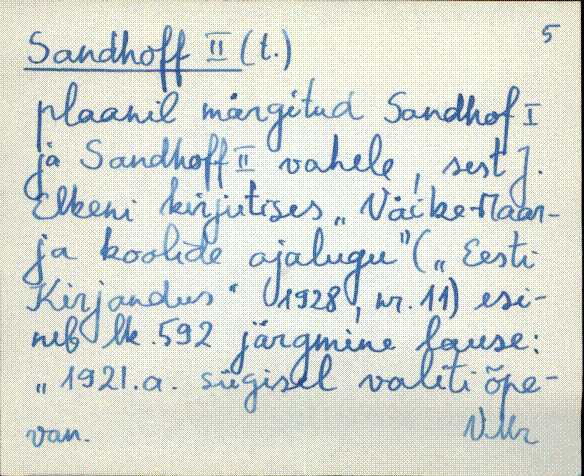 5
Sandhoff II (t.)
plaanil märgitud Sandhof I
ja Sandhoff II vahele, sest J.
Elkeni kirjutises „Väike-Maar-
ja koolide ajalugu" („Eesti
Kirjandus" 1928, nr. 11) esi-
neb lk. 592 järgmine lause:
„1921.a. sügisel valiti õpe-
van. VMr